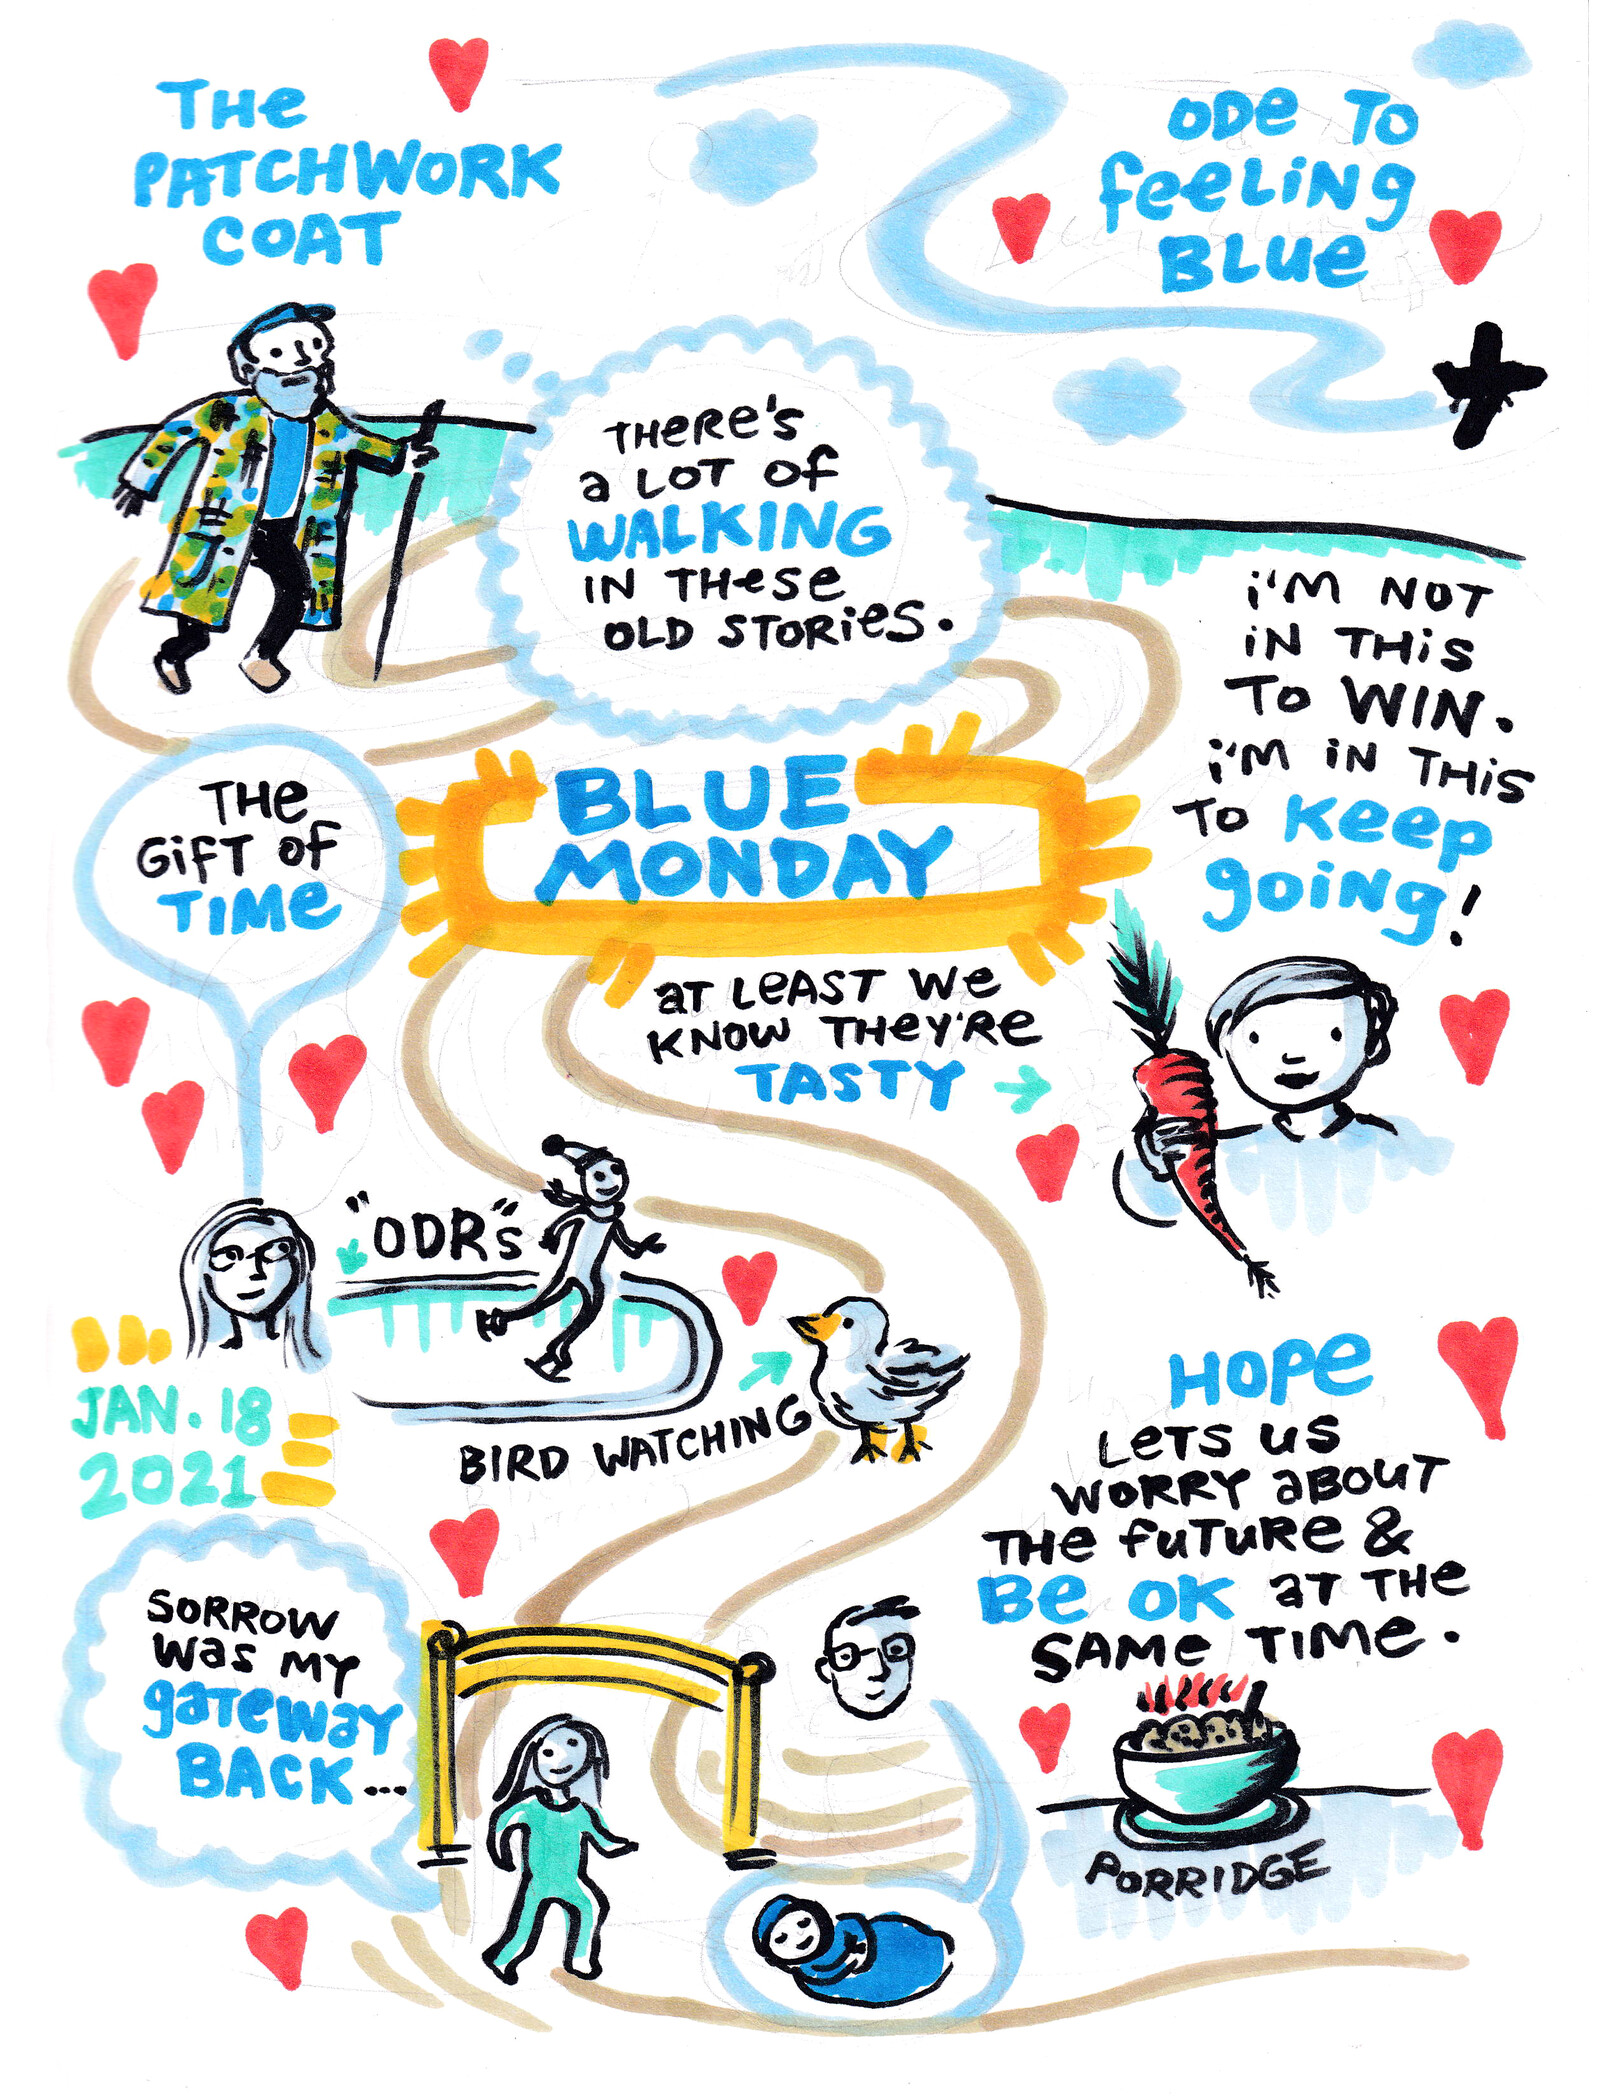 THE
PATCHWORK
COAT
ODE TO
FEELING
BLUE
THERE'S
A LOT OF
WALKING
IN THESE
OLD STORIES.
I'M NOT
IN THIS
TO WIN.
I'M IN THIS
TO KEEP
GOING!
THE
GIFT OF
TIME
BLUE
MONDAY
AT LEAST WE
KNOW THEY'RE
TASTY
"ODR"s
BIRD WATCHING
JAN. 18
2021
HOPE
LETS US
WORRY ABOUT
THE FUTURE &
BE OK AT THE
SAME TIME.
SORROW
WAS MY
GATEWAY
BACK...
PORRIDGE